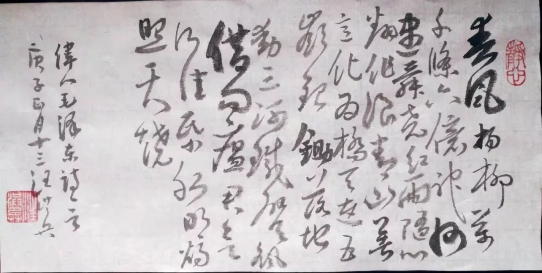 春风杨柳万
千條六億神州
尽舜尧红雨随心
翻作浪青山著
意化为橋天连五
岭银锄落地
动三河铁臂摇
借问瘟君欲
何往纸船明烛
照天烧
偉人毛泽东詩一首
庚子正月十三汪